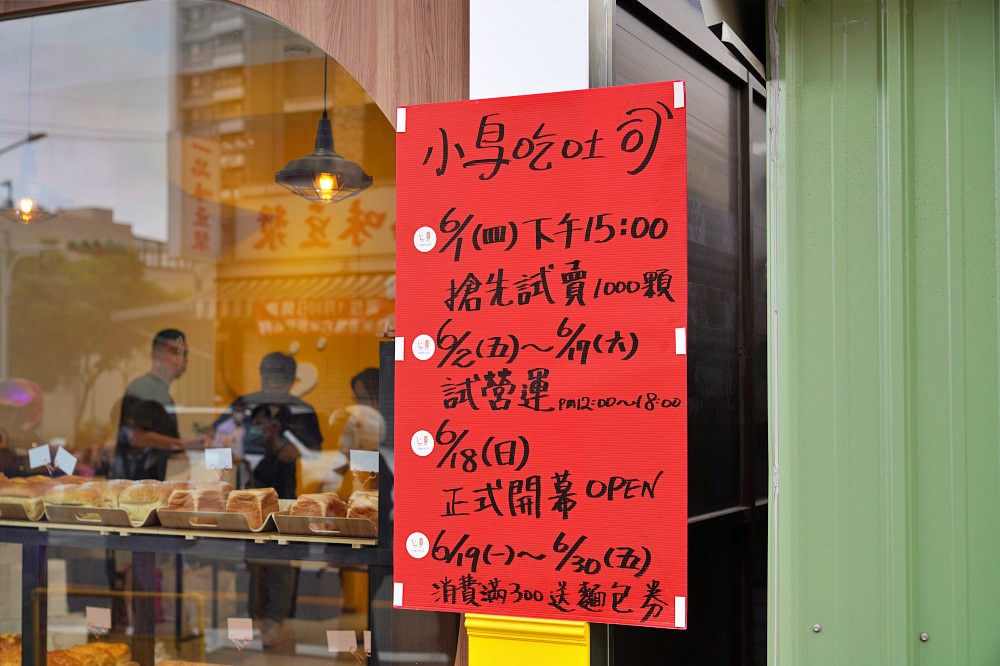 小島吃吐司
6/1(四)下午15:00
搶先試賣1000顆
6/2(五)~6/17(六)
試營運PM12:00~18:00
6/18(日)
正式開幕OPEN
6/19(一)~6/30(五)
消費滿300送麵包券